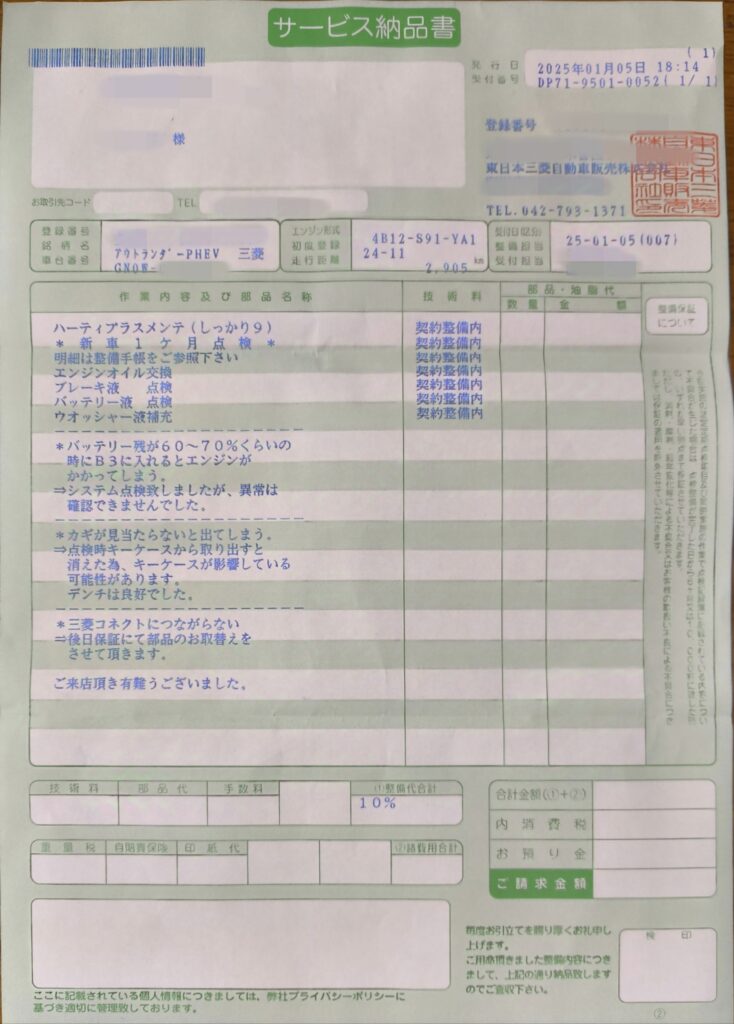 サービス納品書
(1)
発行日 2025年01月05日 18:14
受付番号 DP71-9501-0052( 1/ 1)
様
登録番号
東日本三菱自動車販売株式会社
TEL.042-793-1371
お取引先コード TEL
登録番号
銘柄名 アウトランダーPHEV 三菱
車台番号 GN0W-
エンジン形式 4B12-S91-YA1
初度登録 24-11
走行距離 2,905 km
受付日(区別) 25-01-05(007)
整備担当
受付担当
作業内容及び部品名称 技術料 部品・油脂代
数量 金額
整備保証
について
ハーティプラスメンテ(しっかり9) 契約整備内
* 新車1ケ月点検 * 契約整備内
明細は整備手帳をご参照下さい 契約整備内
エンジンオイル交換 契約整備内
ブレーキ液 点検 契約整備内
バッテリー液 点検 契約整備内
ウオッシャー液補充 契約整備内
*バッテリー残が60~70%くらいの
時にB3に入れるとエンジンが
かかってしまう。
⇒システム点検致しましたが、異常は
確認できませんでした。
*カギが見当たらないと出てしまう。
⇒点検時キーケースから取り出すと
消えた為、キーケースが影響している
可能性があります。
デンチは良好でした。
*三菱コネクトにつながらない
⇒後日保証にて部品のお取替えを
させて頂きます。
ご来店頂き有難うございました。
技術料 部品代 手数料 ①整備代合計
10%
重量税 自賠責保険 印紙代 ②諸費用合計
合計金額(①+②)
内消費税
お預り金
ご請求金額
毎度お引立てを賜り厚くお礼申し
上げます。
ご用命頂きました整備内容につき
まして、上記の通り納品致します
のでご査収下さい。
検印
ここに記載されている個人情報につきましては、弊社プライバシーポリシーに
基づき適切に管理致しております。
②